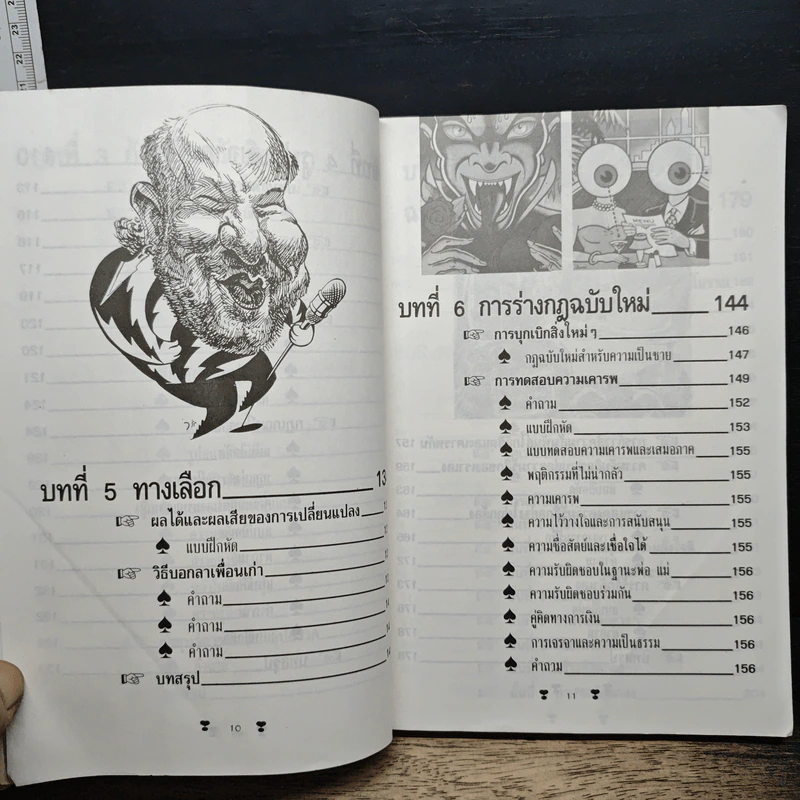 23
22
21
บทที่ 5 ทางเลือก 13
ผลได้และผลเสียของการเปลี่ยนแปลง
แบบฝึกหัด
วิธีบอกลาเพื่อนเก่า
คำถาม
คำถาม
คำถาม
บทสรุป
10
MENU
บทที่ 6 การร่างกฎฉบับใหม่ 144
การบุกเบิกสิ่งใหม่ ๆ 146
กฎฉบับใหม่สำหรับความเป็นชาย 147
การทดสอบความเคารพ 149
คำถาม 152
แบบฝึกหัด 153
แบบทดสอบความเคารพและเสมอภาค 155
พฤติกรรมที่ไม่น่ากลัว 155
ความเคารพ 155
ความไว้วางใจและการสนับสนุน 155
ความซื่อสัตย์และเชื่อใจได้ 155
ความรับผิดชอบในฐานะพ่อ แม่ 156
ความรับผิดชอบร่วมกัน 156
คู่คิดทางการเงิน 156
การเจรจาและความเป็นธรรม 156
คำถาม 156
11